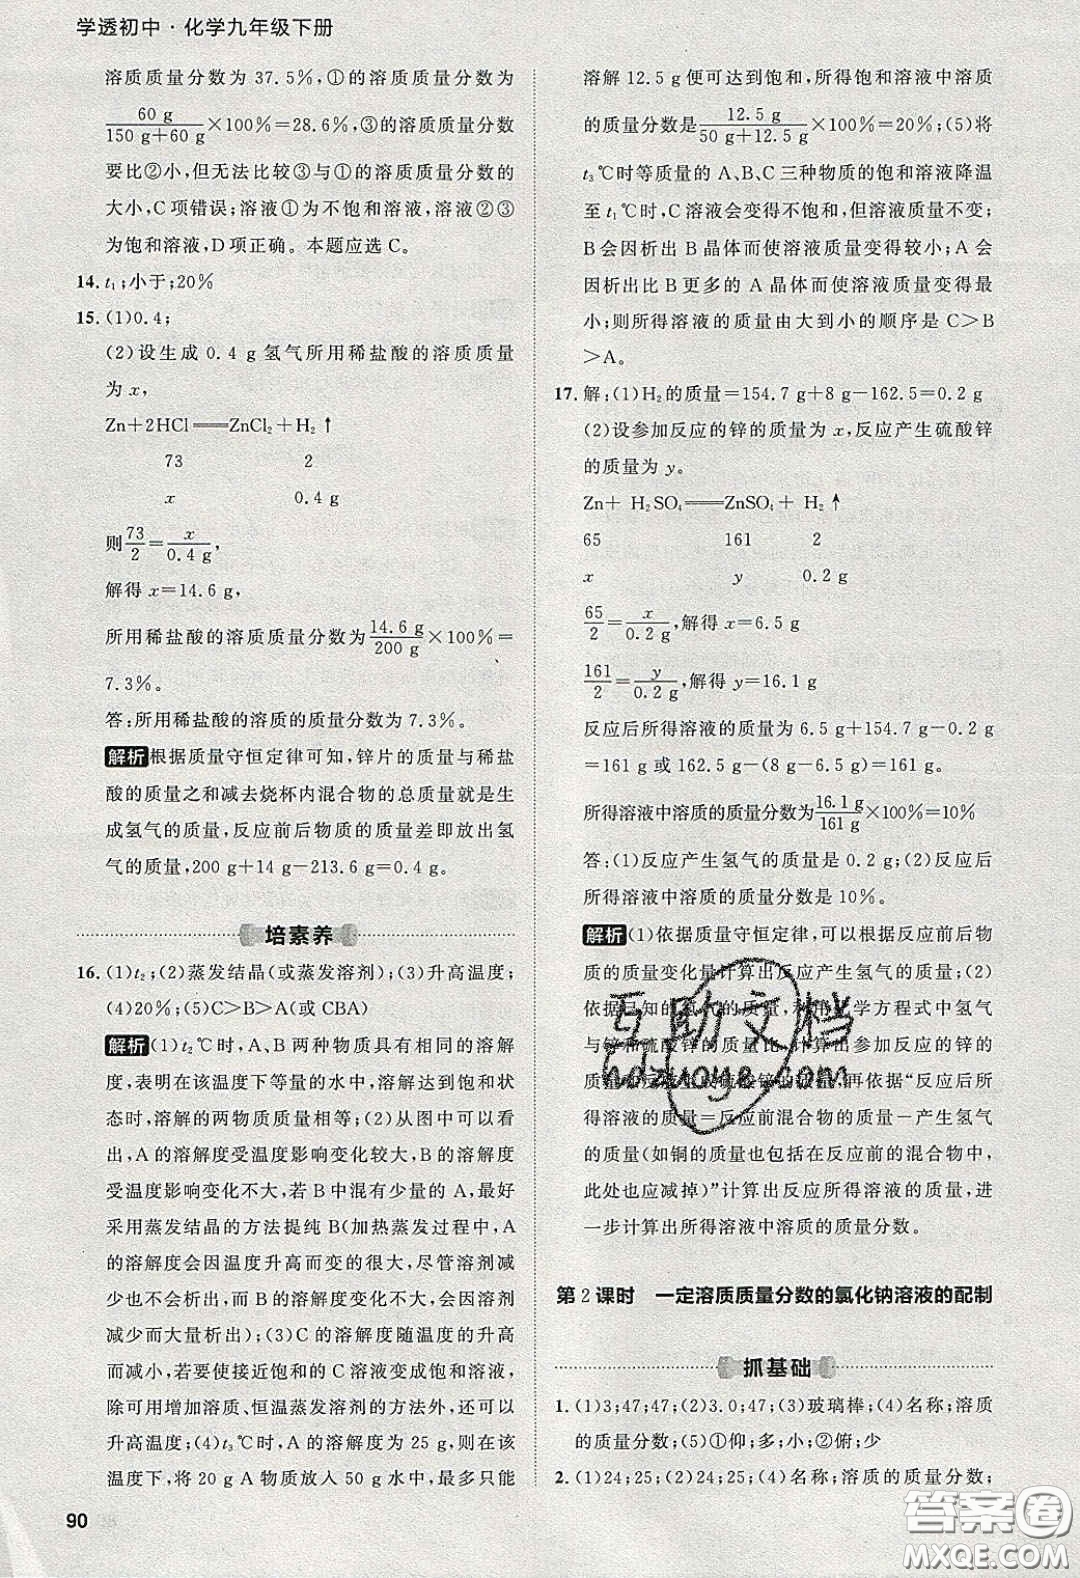 学透初中·化学九年级下册
溶质质量分数为 37.5%,①的溶质质量分数为
60 g
150 g+60 g ×100%=28.6%,③的溶质质量分数
要比②小,但无法比较③与①的溶质质量分数的
大小,C 项错误;溶液①为不饱和溶液,溶液②③
为饱和溶液,D 项正确。本题应选 C。
14. t₁;小于;20%
15. (1)0.4;
(2)设生成 0.4 g 氢气所用稀盐酸的溶质质量
为 x,
Zn+2HCl══ZnCl₂+H₂↑
73 2
x 0.4 g
则73/2=x/0.4 g,
解得 x=14.6 g,
所用稀盐酸的溶质质量分数为14.6 g/200 g×100%=
7.3%。
答:所用稀盐酸的溶质的质量分数为 7.3%。
解析 根据质量守恒定律可知,锌片的质量与稀盐
酸的质量之和减去烧杯内混合物的总质量就是生
成氢气的质量,反应前后物质的质量差即放出氢
气的质量,200 g+14 g-213.6 g=0.4 g。
培素养
16. (1)t₂;(2)蒸发结晶(或蒸发溶剂);(3)升高温度;
(4)20%;(5)C>B>A(或 CBA)
解析 (1)t₂℃时,A、B 两种物质具有相同的溶解
度,表明在该温度下等量的水中,溶解达到饱和状
态时,溶解的两物质质量相等;(2)从图中可以看
出,A 的溶解度受温度影响变化较大,B 的溶解度
受温度影响变化不大,若 B 中混有少量的 A,最好
采用蒸发结晶的方法提纯 B(加热蒸发过程中,A
的溶解度会因温度升高而变的很大,尽管溶剂减
少也不会析出,而 B 的溶解度变化不大,会因溶剂
减少而大量析出);(3)C 的溶解度随温度的升高
而减小,若要使接近饱和的 C 溶液变成饱和溶液,
除可用增加溶质、恒温蒸发溶剂的方法外,还可以
升高温度;(4)t₃℃时,A 的溶解度为 25 g,则在该
温度下,将 20 g A 物质放入 50 g 水中,最多只能
90
溶解 12.5 g 便可达到饱和,所得饱和溶液中溶质
的质量分数是12.5 g/50 g+12.5 g×100%=20%;(5)将
t₃℃时等质量的 A、B、C 三种物质的饱和溶液降温
至 t₁℃时,C 溶液会变得不饱和,但溶液质量不变;
B 会因析出 B 晶体而使溶液质量变得较小;A 会
因析出比 B 更多的 A 晶体而使溶液质量变得最
小;则所得溶液的质量由大到小的顺序是 C>B
>A。
17. 解:(1)H₂的质量=154.7 g+8 g-162.5=0.2 g
(2)设参加反应的锌的质量为 x,反应产生硫酸锌
的质量为 y。
Zn+ H₂SO₄══ZnSO₄+ H₂↑
65 161 2
x y 0.2 g
65/2=x/0.2 g,解得 x=6.5 g
161/2=y/0.2 g,解得 y=16.1 g
反应后所得溶液的质量为 6.5 g+154.7 g-0.2 g
=161 g 或 162.5 g-(8 g-6.5 g)=161 g。
所得溶液中溶质的质量分数为16.1 g/161 g×100%=10%
答:(1)反应产生氢气的质量是 0.2 g;(2)反应后
所得溶液中溶质的质量分数是 10%。
解析 (1)依据质量守恒定律,可以根据反应前后物
质的质量变化量计算出反应产生氢气的质量;(2)
依据已知的氢气的质量,利用化学方程式中氢气
与锌和硫酸锌的质量比,计算出参加反应的锌的
质量及生成硫酸锌的质量,再依据“反应后所
得溶液的质量=反应前混合物的质量-产生氢气
的质量(如铜的质量也包括在反应前的混合物中,
此处也应减掉)”计算出反应所得溶液的质量,进
一步计算出所得溶液中溶质的质量分数。
第 2 课时 一定溶质质量分数的氯化钠溶液的配制
抓基础
1. (1)3;47;47;(2)3.0;47;(3)玻璃棒;(4)名称;溶质
的质量分数;(5)①仰;多;小;②俯;少
2. (1)24;25;(2)24;25;(4)名称;溶质的质量分数;
互助文档
hdzuoye.com
答案圈
MXQE.COM